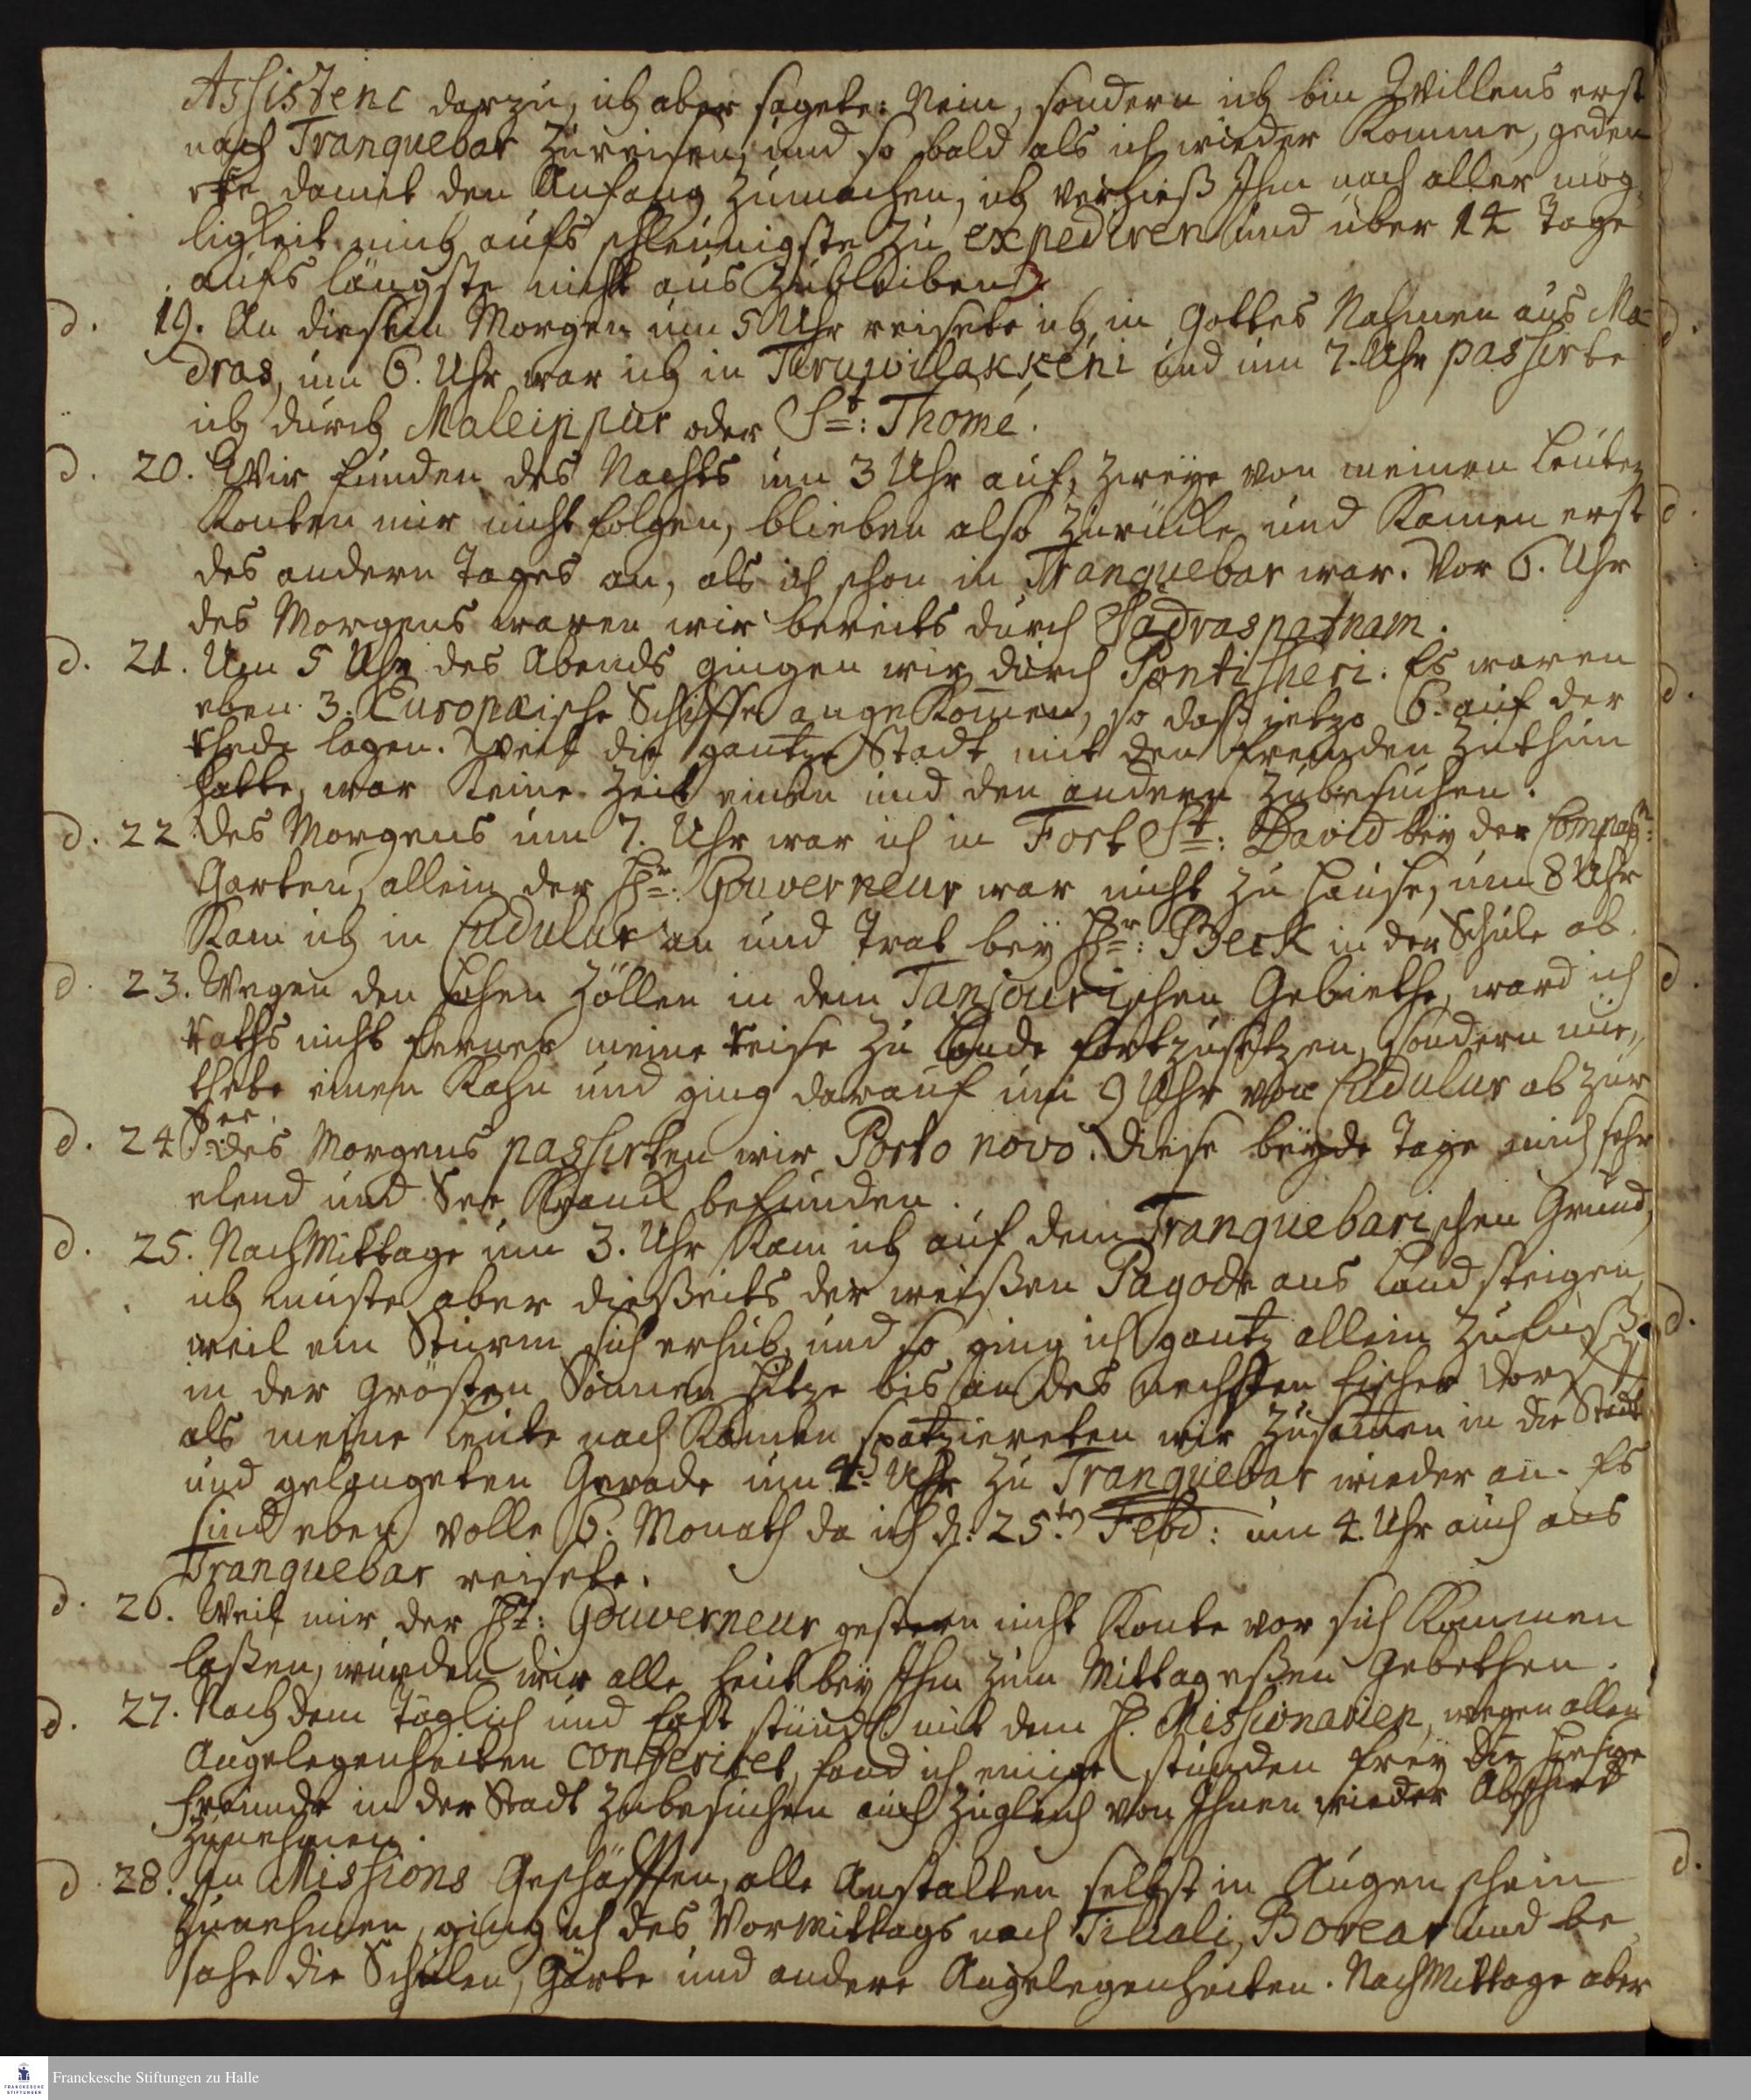 Assistenc darzu, ich aber sagete: Nein, sondern ich bin Willens erst
nach Tranquebar zureisen, und so bald als ich wieder Komme, geden
cke damit den Anfang zumachen, ich verhieß Ihm nach aller mög-
ligkeit mich aufs schleunigste zu expediren und über 14 Tage
aufs längste nicht aus zubleiben.
d. 19. An diesem Morgen um 5 Uhr reisete ich in Gottes Nahmen aus Ma-
dras, um 6. Uhr war ich in Tiruwillakkeni und um 7. Uhr passirte
ich durch Maleippur oder St: Thomé.
d. 20. Wir funden des Nachts um 3 Uhr auf, zweye von meinen Leuten
Konten mir nicht folgen, blieben also zurücke und Kamen erst
des andern Tages an, als ich schon in Tranquebar war. Vor 6. Uhr
des Morgens waren wir bereits durch Sadraspatnam.
d. 21. Um 5 Uhr des Abends gingen wir durch Pontischeri. Es waren
eben 3. Europæische Schiffe angeKom̅en, so daß jetzo 6. auf der
Rhede lagen. Weil die gantze Stadt mit den Fremden zuthun
hatte, war Keine Zeit einen und den andern zubesuchen.
d. 22 Des Morgens um 7. Uhr war ich in Fort St: David bey der Compag:
Garten, allein der Hr: Gouverneur war nicht zu Hause, um 8 Uhr
Kam ich in Cudulur an und Trat bey Hr: Beck in der Schule ab.
d. 23. Wegen den hohen Zöllen in dem Tanjourischen Gebiethe, ward ich
raths nicht ferner meine Reise zu Lande fortzusetzen, sondern mie,,
thete einen Kahn und ging darauf um 9 Uhr von Cudulur ab zur
See.
d. 24. Des Morgens passirten wir Porto novo. Diese beyde Tage mich sehr
elend und See Kranck befunden.
d. 25. NachMittage um 3. Uhr Kam ich auf dem Tranquebarischen Grund,
ich muste aber dießeits der weißen Pagode ans Land steigen,
weil ein Sturm sich erhub, und so ging ich gantz allein zufuß
in der grösten Sonnen hitze bis an des nechsten Fischer Dorf
als meine Leute nach Kamen spatziereten wir zusam̅en in die Stadt
und gelangeten Gerade um 4. Uhr zu Tranquebar wieder an. Es
sind eben volle 6. Monath da ich d. 25.ten Febr: um 4. Uhr auch aus
Tranquebar reisete.
d. 26. Weil mir der Hr: Gouverneur gestern nicht Konte vor sich Kommen
laßen, wurden wir alle heut bey Ihm zum Mittag eßen Gebethen.
d. 27. Nach dem Täglich und fast stündl. mit dem H. Missionarien, wegen allen
Angelegenheiten conferiret, fand ich einige stunden frey die hiesige
Freunde in der Stadt zubesuchen auch zugleich von Ihnen wieder Abschied
zunehmen.
d. 28. In Missions Geschäfften, alle Anstalten selbst in Augen schein
zunehmen, ging ich des VorMittags nach Tiliali, Boreat und be
sahe die Schulen, Gärte und andere Angelegenheiten. NachMittage aber
Franckesche Stiftungen zu Halle